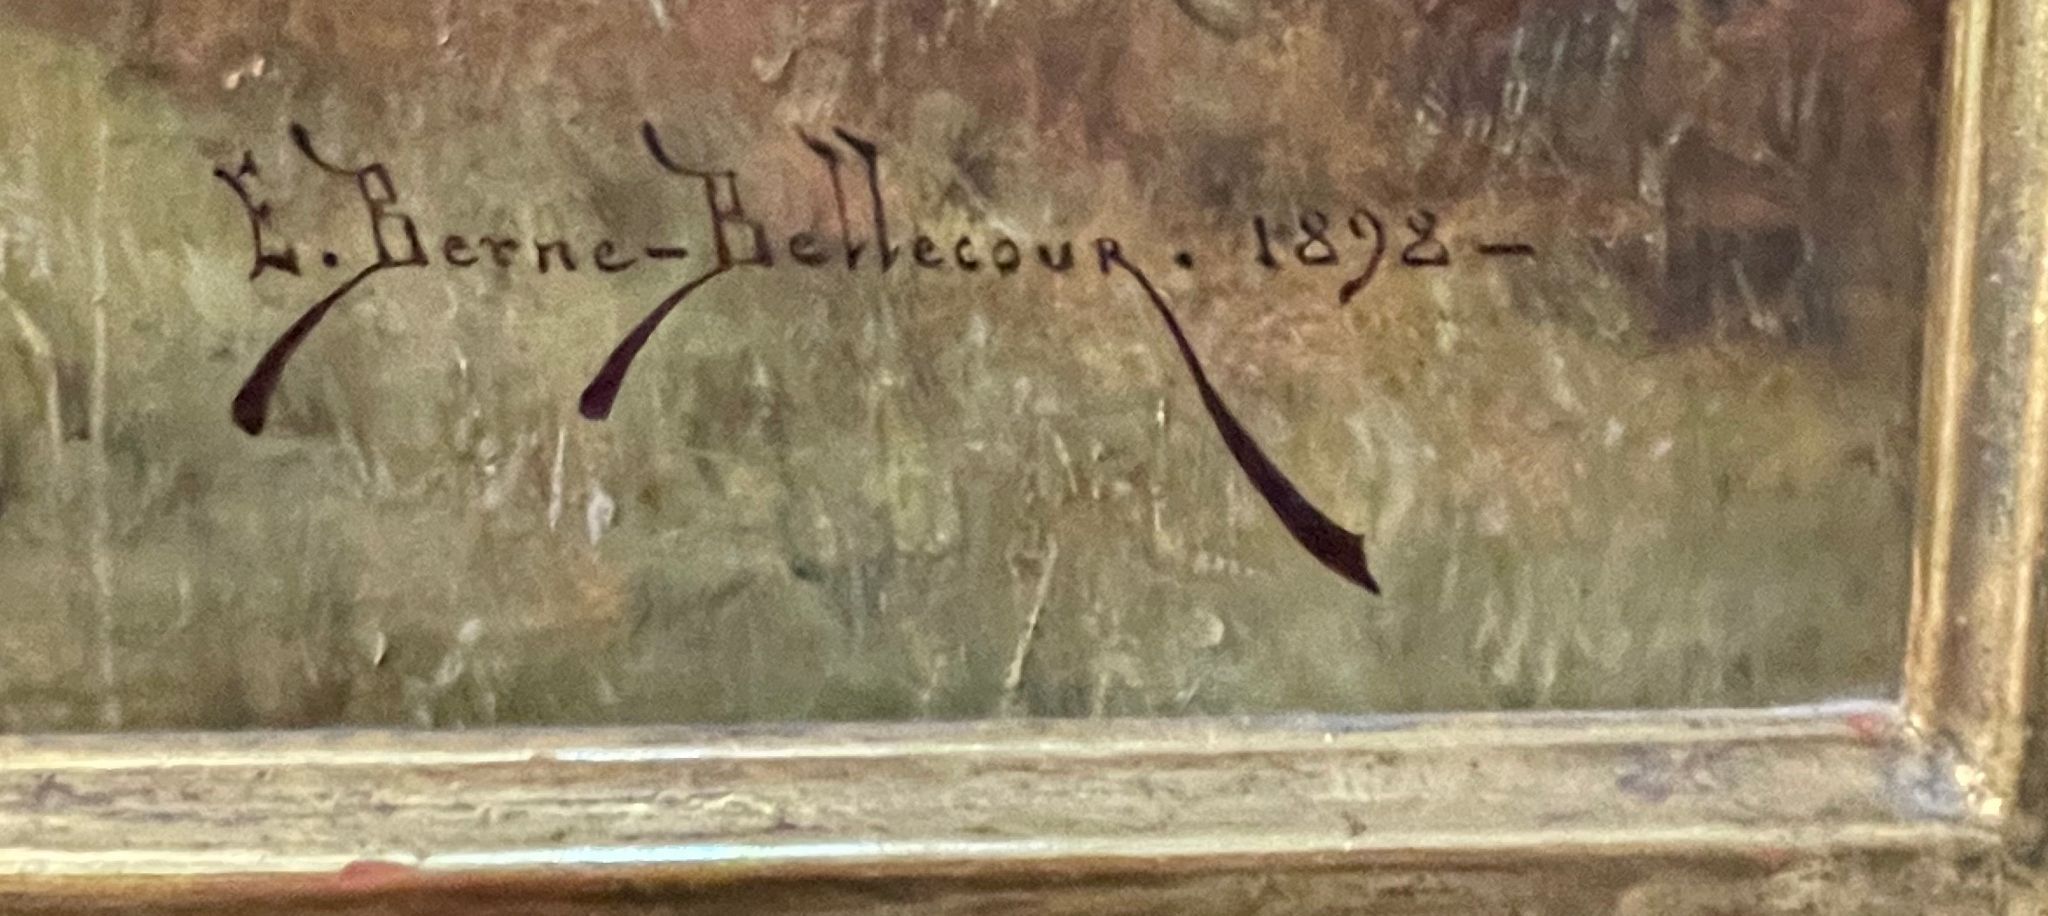 E. Berne-Bellecour. 1898-